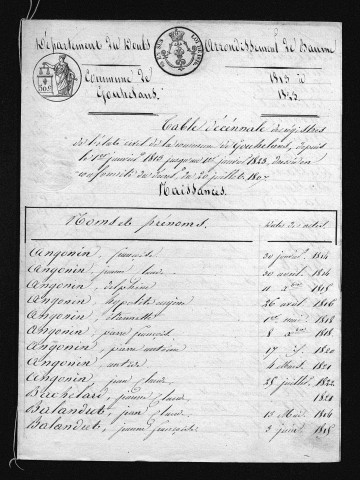 Département du Doubs
Arrondissement de Baume
Commune de
Gouhelans.
1813 à
1823.
Table décennale des registres
de l'état civil de la commune de Gouhelans, depuis
le 1er janvier 1813 jusqu'au 1er janvier 1823, dressée en
conformité du décret du 20 juillet 1807.
Naissances.
Noms et prénoms. Dates des actes
Angonin, françoise 30 janvier 1814
Angonin, jeanne claude 30 avril 1814
Angonin, delphine 11 Xbre 1815
Angonin, hypolite eugène 26 avril 1816
Angonin, 1er 1818
Angonin, pierre françois 8 Xbre 1818
Angonin, pierre antoine 17 1820
Angonin, 4 Mars 1821
Angonin, jean claude 25 juillet 1822
Bachelard, jeanne claude 1820
Balandret, jean claude 13 Mai 1814
Balandret, jeanne françoise 3 juin 1815